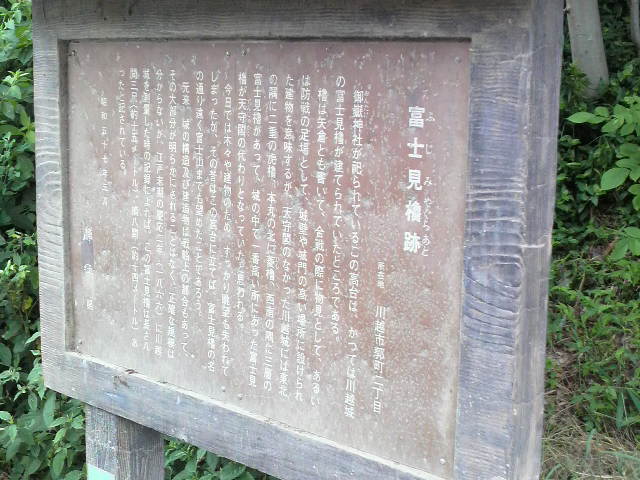 ふじみやぐらあと
富士見櫓跡
所在地 川越市郭町二丁目
おんたけ
御嶽神社が祀られているこの高台は、かつては川越城
の富士見櫓が建てられていたところである。
櫓は矢倉とも書いて、合戦の際に物見として、あるい
は防戦の足場として、城壁や城門の高い場所に設けられ
た建物を意味するが、天守閣のなかった川越城には東北
の隅に二重の虎櫓、本丸の北に菱櫓、西南の隅に三層の
富士見櫓があって、城の中で一番高い所にあった富士見
櫓が天守閣の代わりとなっていたと思われる。
今日では木々や建物のため、すっかり眺望も失われて
しまったが、その昔はこの高台に立てば、富士見櫓の名
の通り遠く富士山までも望めたことであろう。
元来、城の構造及び建造物は戦略上の都合もあって、
その大部分が明らかにされることはなく、正確な規模は
分からないが、江戸末期の慶応二年(一八六六)に川越
城を測量した時の記録によれば、この富士見櫓は長さ八
間三尺(約十五メートル)、横八間(約十四メートル)あ
ったと記されている。
昭和五十七年三月